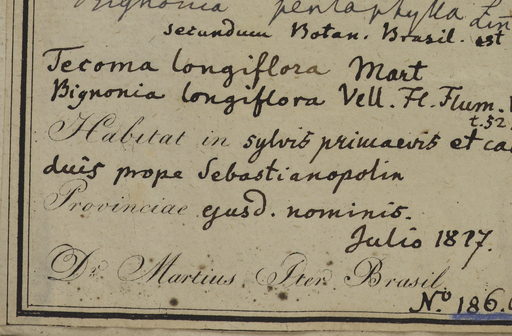 Bignonia pentaphylla Lin
secundum Botan. Brasil. est
Tecoma longiflora Mart
Bignonia longiflora Vell. Fl. Flum.
t. 52
Habitat in sylvis primaevis et cae
duis prope Sebastianopolin
Provinciae ejusd. nominis.
Julio 1817.
Dr. Martius Iter Brasil.
No. 186.